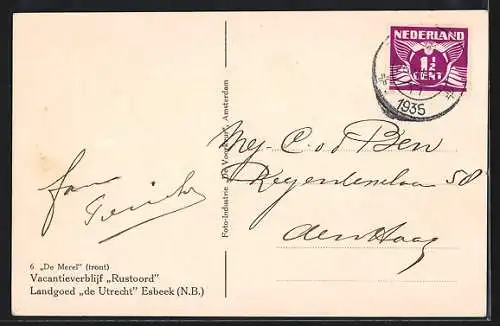 NEDERLAND
1½
CENT
1935
Mej. C. v d Ben
58
den Haag
Foto-Industrie „De Voorpost", Amsterdam
6 „De Merel" (front)
Vacantieverblijf „Rustoord"
Landgoed „de Utrecht" Esbeek (N.B.)